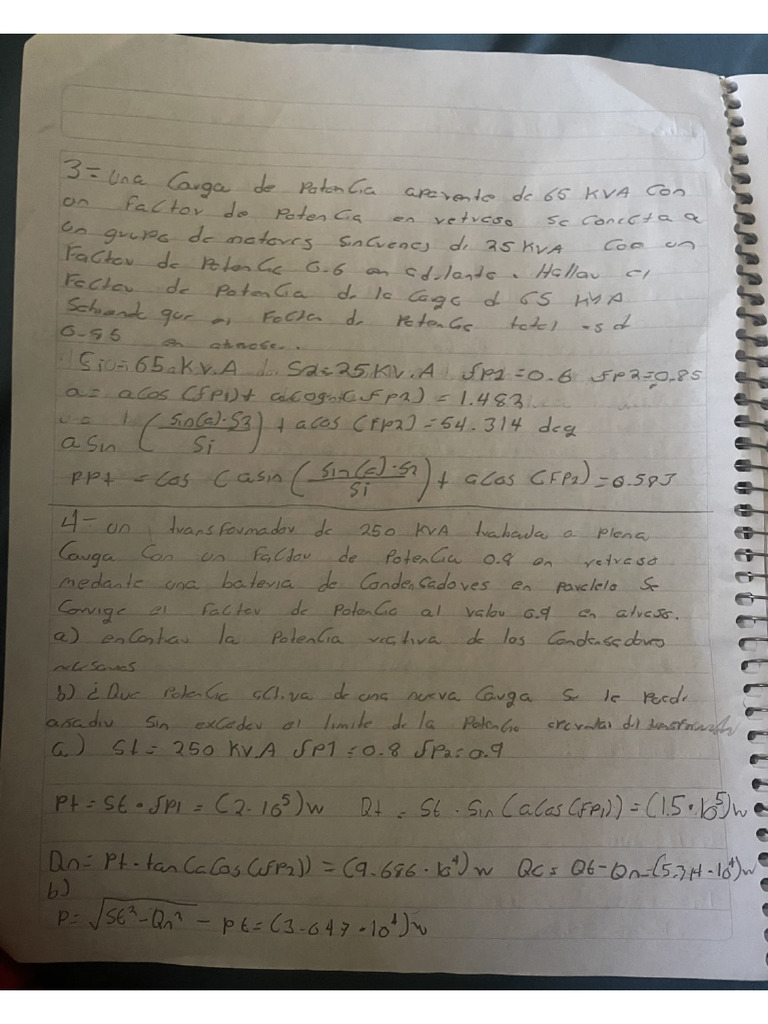 3= Una Carga de Potencia aparente de 65 KVA Con
un Factor de Potencia en retraso se conecta a
un grupo de motores sincrenos di 25 KVA Con un
Factor de Potencia 0.6 en adelanto. Hallar el
Factor de potencia de la Carga d 65 KVA
Sabiendo que el Factor de Potencia total es d
0.85 en atraso.
Si = 65.KV.A S2=25.KV.A fp1=0.6 fp2=0.85
a= acos (fp1)+ acos (fp2) = 1.483
asin (sin(a)·S2/Si) + acos (fp2) = 54.314 deg
PPt = Cos (asin (sin(a)·S2/Si) + acos (FP2) = 0.583
4- un transformador de 250 KVA trabada a plena
Carga Con un Factor de Potencia 0.8 en retraso
mediante una bateria de Condensadores en paralelo se
Corrige el Factor de Potencia al valor 0.9 en atraso.
a) encontrar la Potencia reactiva de los Condensadores
necesarios
b) ¿Que Potencia activa de una nueva Carga se le puede
añadir Sin exceder el limite de la Potencia del
a) St = 250 KV.A fp1=0.8 fp2=0.9
Pt = St · fp1 = (2·10⁵) w Qt = St · Sin (acos(fp1)) = (1.5·10⁵) w
Qn = Pt · tan (acos(fp2)) = (9.686·10⁴) w Qc = Qt-Qn=(5.314·10⁴)w
b)
P= √St²-Qn² - pt = (3.047·10⁴)w